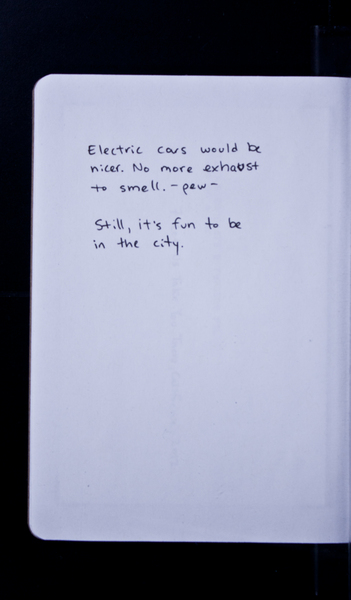 Electric cars would be
nicer. No more exhaust
to smell. - pew -
Still, it's fun to be
in the city.